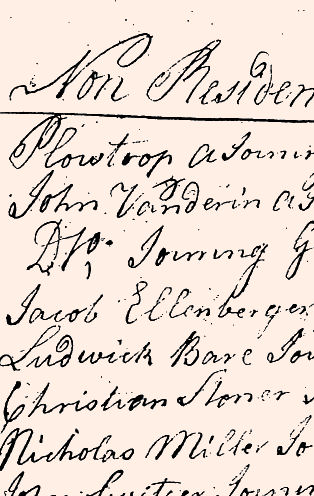 Non Residen
Plowtrop aJoinin
John Vanderin aJ
Do. Joining G
Jacob Ellenberger
Ludwick Bare Joi
Christian Stoner
Nicholas Miller Jo
John Switzer Joinin